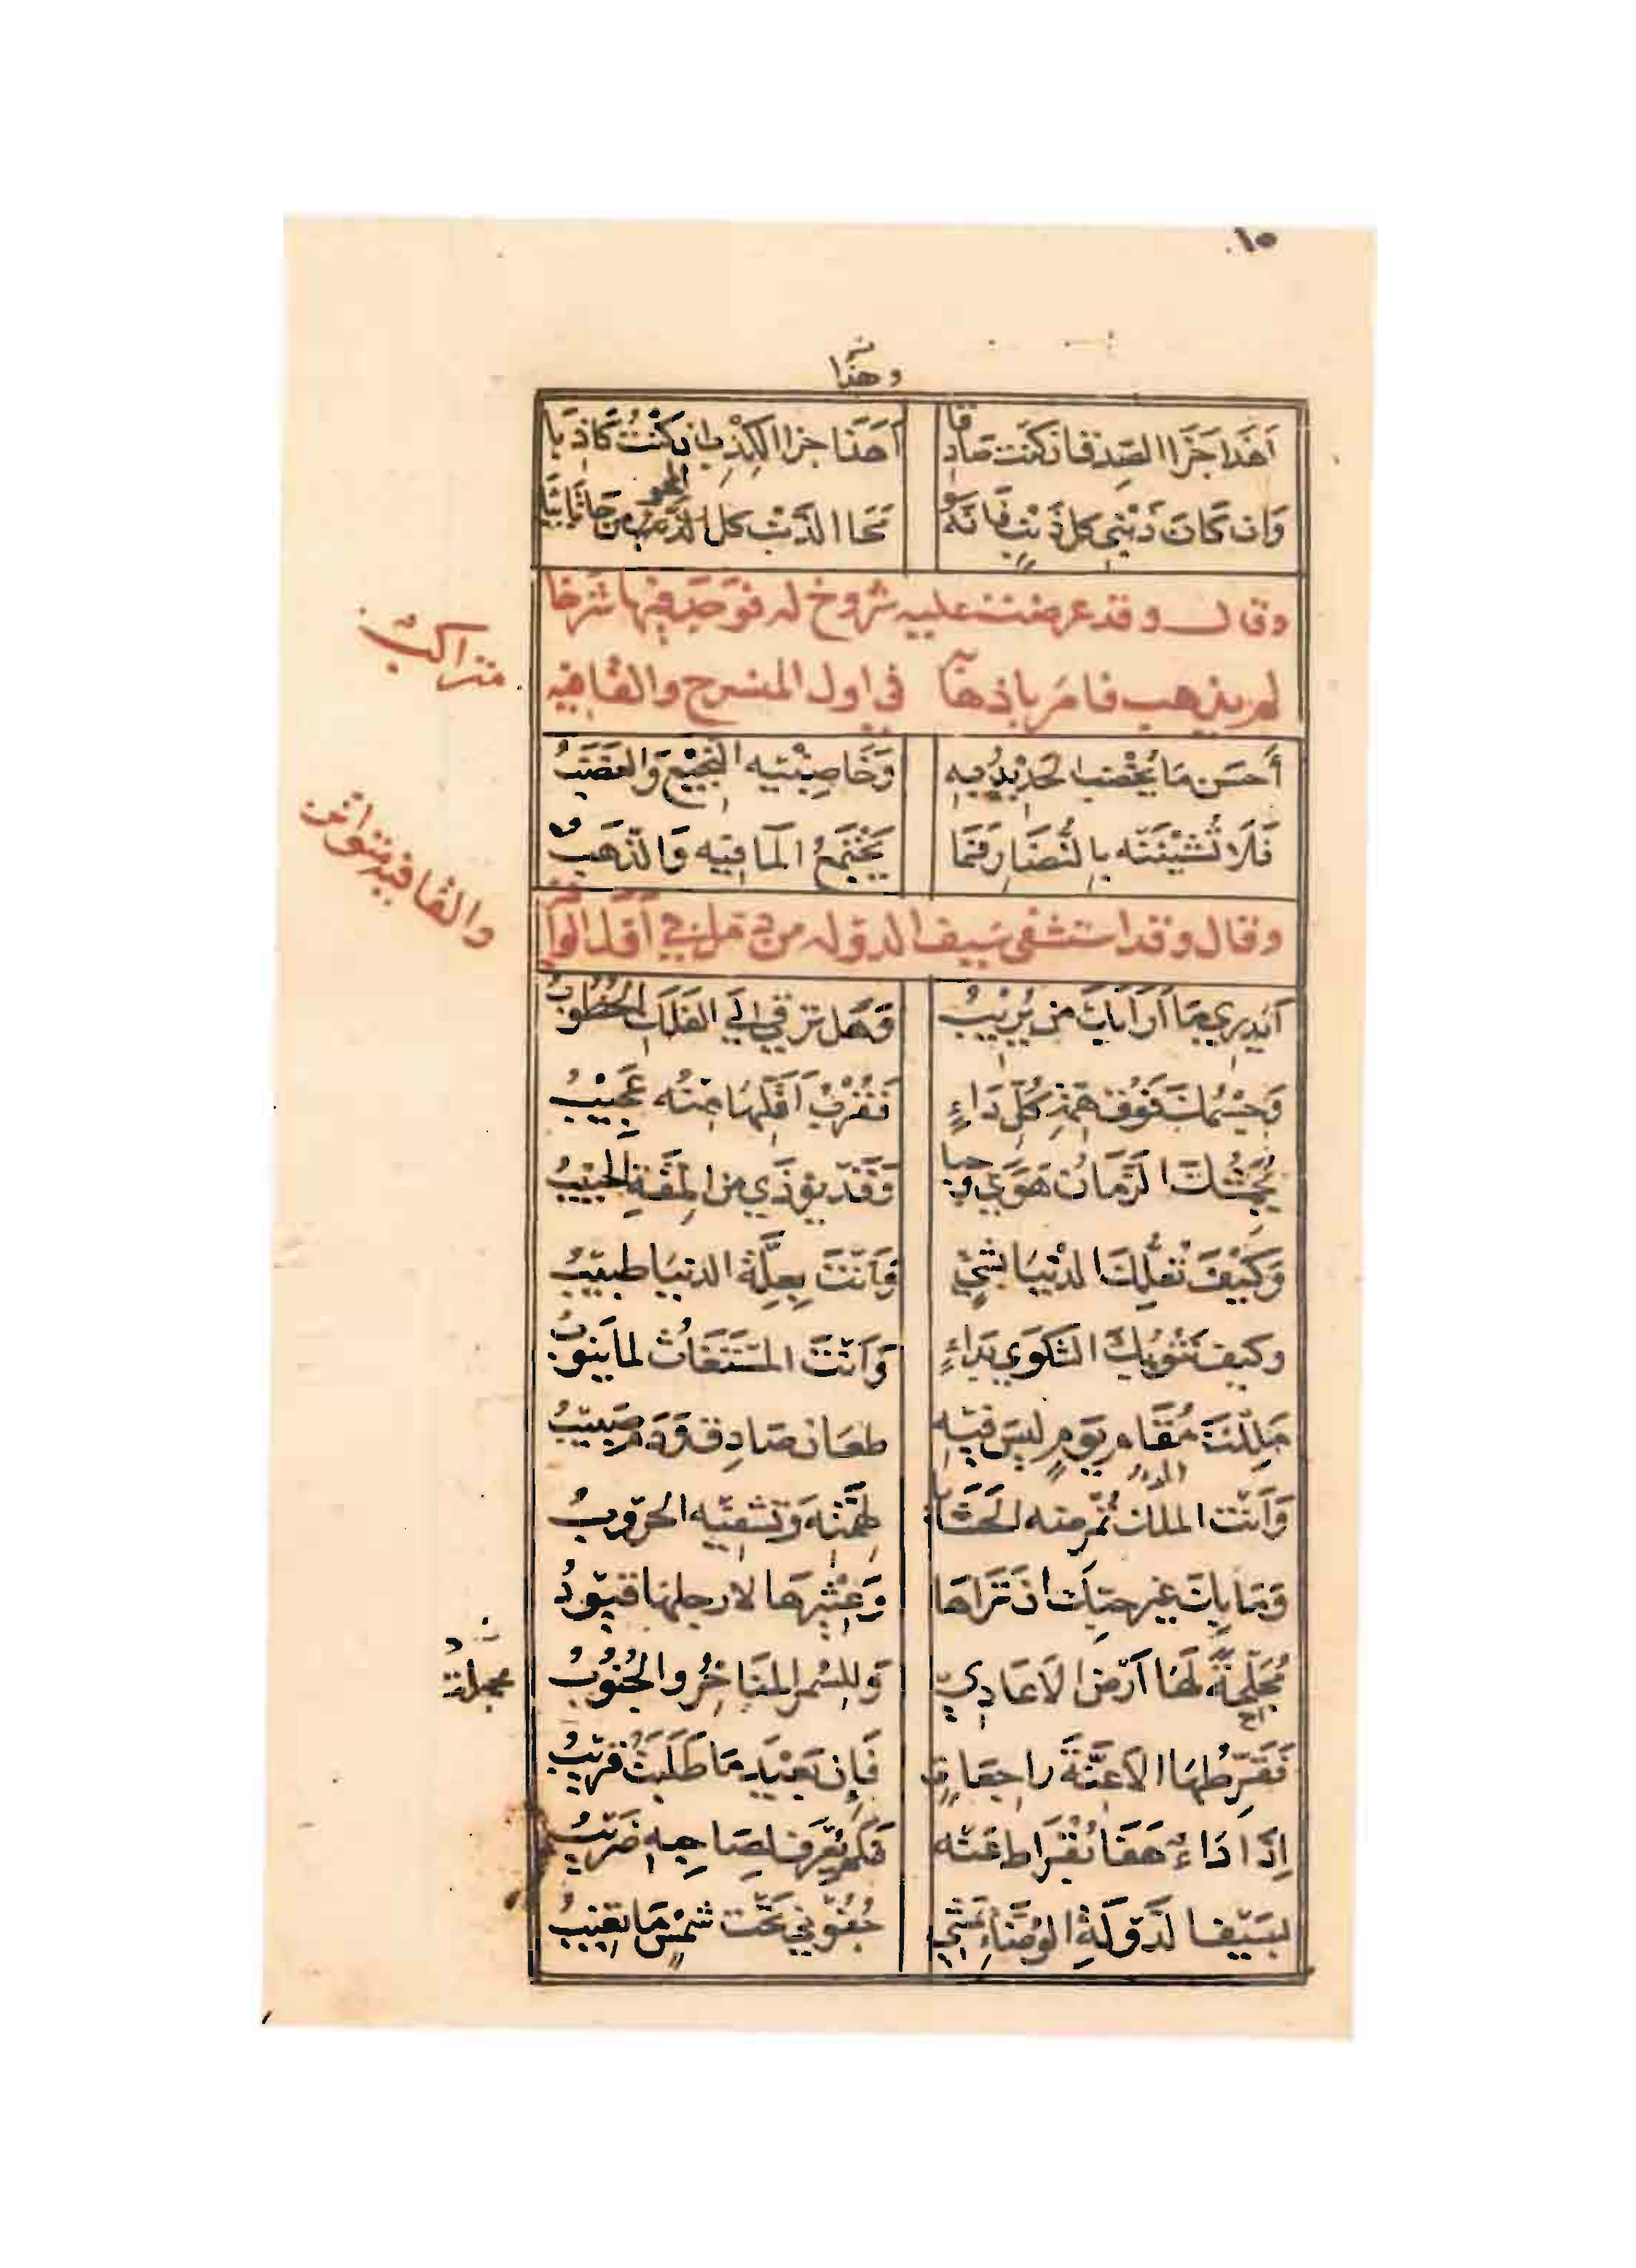 ١٥
وهذا
أهذا جزا الصدق ان كنت صادقا أهذا جزا الكذب ان كنت كاذبا
وان كان ذنبي كل ذنب فانه محا الذنب كل المحو من جا تائبا
وقال وقد عرضت عليه شروخ له فوجد فيها شرخا
لم يذهب فامر باذهابه في اول المنسرح والقافيه
متراكب
أحسن ما يخضب الحديد به وخاضبيه النجيع والغضب
فلا تشيننه بالنضار فما يجتمع الما فيه والذهب
وقال وقد استشفى سيف الدوله من دمل في أول الوافر
والقافيه متواتر
أيدري ما أرابك من يريب وهل ترقى الى الفلك الخطوب
وجسمك فوق همة كل داء فقرب أقلها منه عجيب
يجمشك الزمان هوى وحبا وقد يؤذي من المقة الحبيب
وكيف تعلك الدنيا بشي وأنت بعلة الدنيا طبيب
وكيف تنوبك الشكوى بداء وأنت المستغاث لما ينوب
مللت مقام يوم ليس فيه طعان صادق ودم صبيب
وأنت الملك تمرضه الحشايا لهمته وتشفيه الحروب
وما بك غير حبك ان تراها وعثيرها لارجلها قيود
مجلحة لها أرض الاعادي وللسمر المناخر والجنوب
مجلحة
فقرطها الاعنة راجعات فإن بعيد ما طلبت قريب
إذا داء هفا بقراط عنه فلم يعرف لصاحبه ضريب
بسيف الدولة الوضاء تمشي جفوني تحت شمس ما تغيب